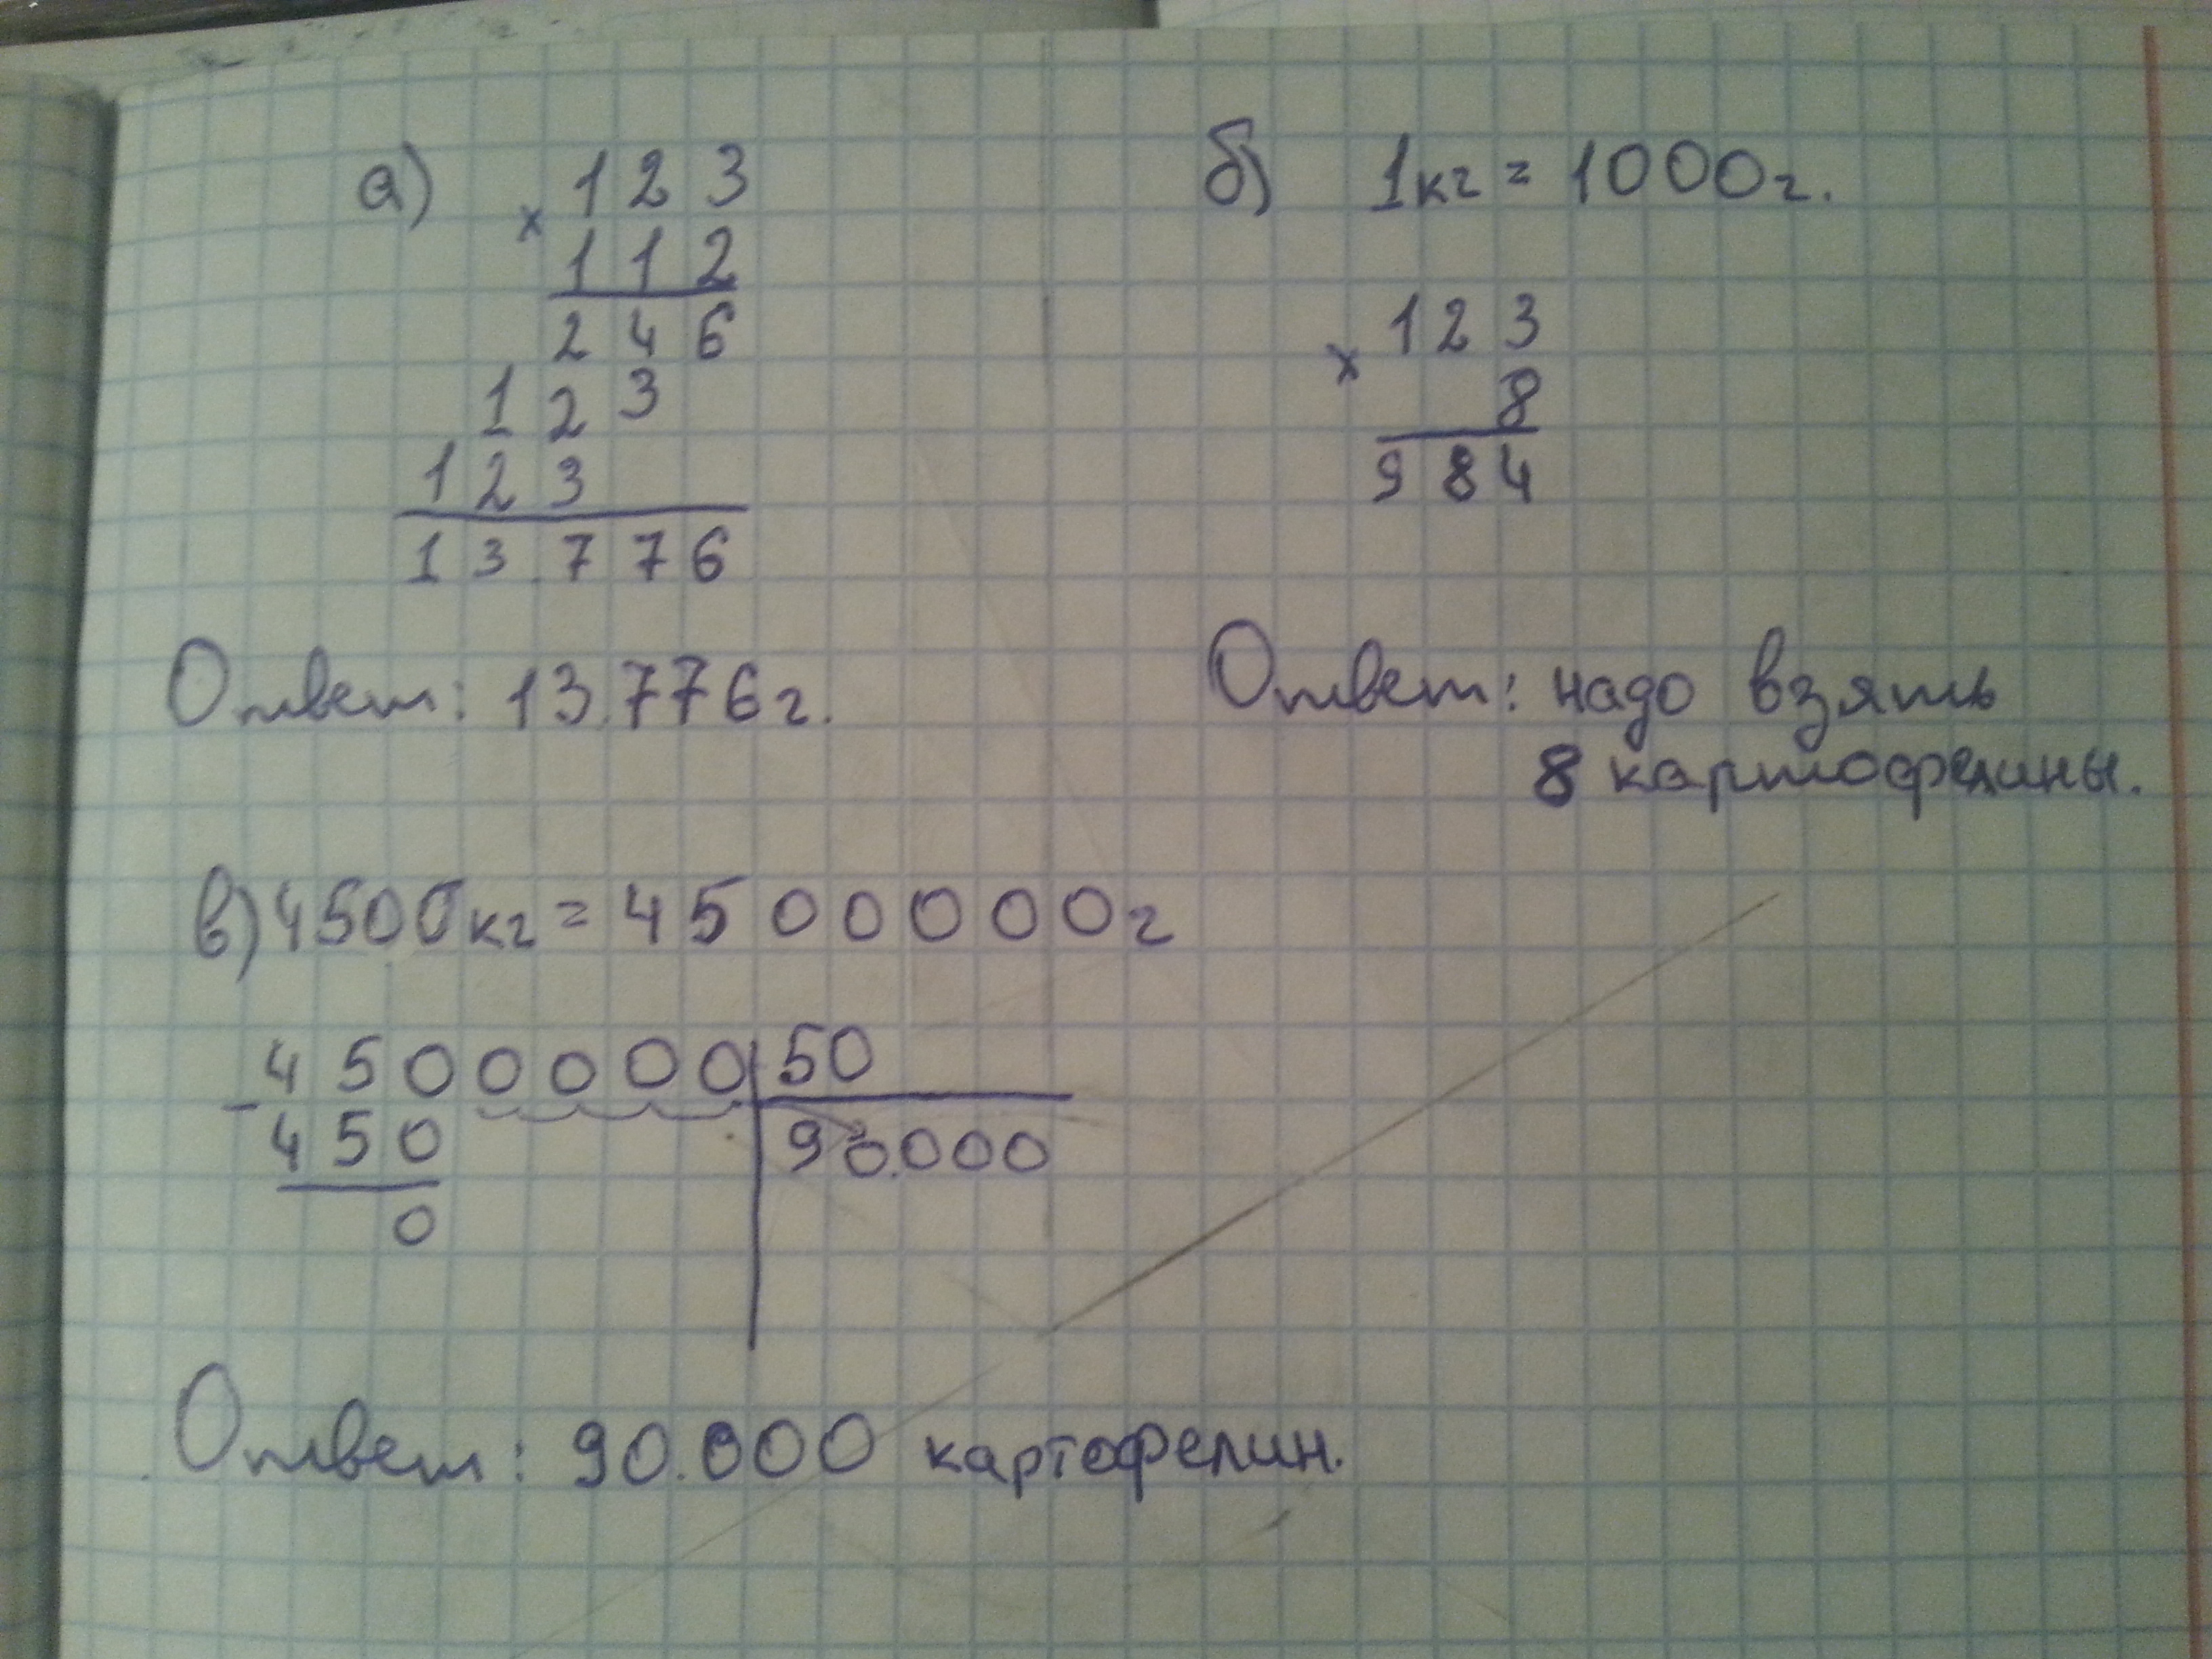 а) 123
х 112
246
123
123
13776
Ответ: 13.776г.
б) 1кг = 1000г.
123
х 8
984
Ответ: надо взять
8 картофелины.
в) 4500кг = 4500000г
4500000 50
- 450 90.000
0
Ответ: 90.000 картофелин.